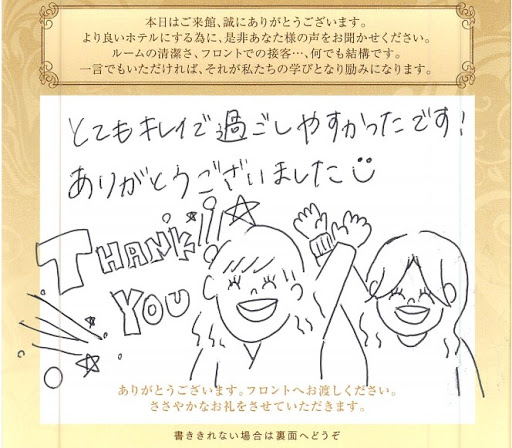 本日はご来館、誠にありがとうございます。
より良いホテルにする為に、是非あなた様の声をお聞かせください。
ルームの清潔さ、フロントでの接客…、何でも結構です。
一言でもいただければ、それが私たちの学びとなり励みになります。
とてもキレイで過ごしやすかったです!
ありがとうございました
THANK
YOU
ありがとうございます。フロントへお渡しください。
ささやかなお礼をさせていただきます。
書ききれない場合は裏面へどうぞ